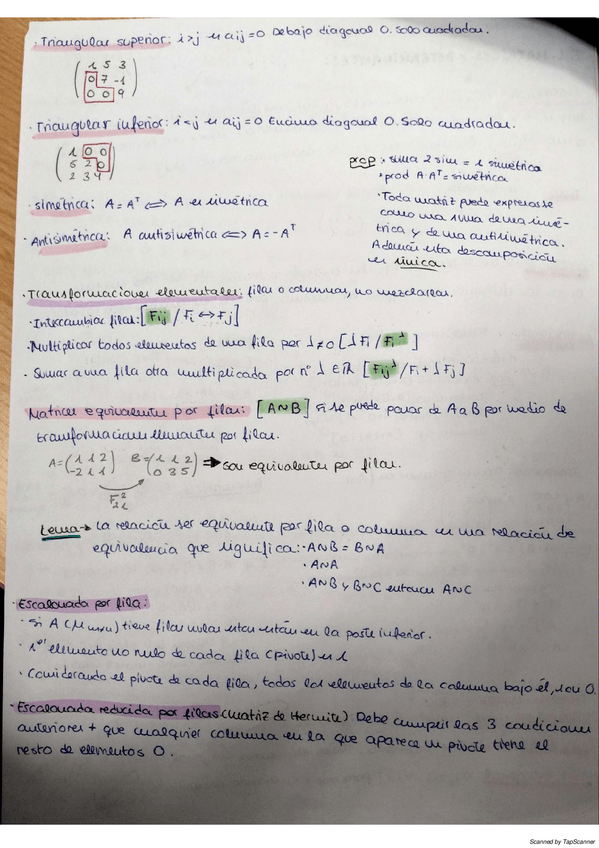 · Triangular superior: i>j si aij=0 Debajo diagonal 0. Solo cuadradas.
1 5 3
0 7 -1
0 0 9
· Triangular inferior: i<j si aij=0 Encima diagonal 0. Solo cuadradas.
1 0 0
5 2 0
2 3 4
prop: · suma 2 sim = 1 simétrica
· prod A·Aᵀ = simétrica
· Toda matriz puede expresarse
como una suma de una simé-
trica y de una antisimétrica.
Además esta descomposición
es única.
· Simétrica: A = Aᵀ ⟺ A es simétrica
· Antisimétrica: A antisimétrica ⟺ A = -Aᵀ
· Transformaciones elementales: filas o columnas, no mezclarlas.
· Intercambiar filas: [Fij / Fi ↔ Fj]
· Multiplicar todos elementos de una fila por λ≠0 [λFi / Fi^λ]
· Sumar a una fila otra multiplicada por nº λ∈ℝ [Fij^λ / Fi + λFj]
Matrices equivalentes por filas: [A∼B] si se puede pasar de A a B por medio de
transformaciones elementales por filas.
A = (1 1 2 B = (1 1 2
-2 1 1) 0 3 5) → son equivalentes por filas.
F²₂₁
Lema → La relación ser equivalente por fila o columna es una relación de
equivalencia que significa: · A∼B = B∼A
· A∼A
· A∼B y B∼C entonces A∼C
· Escalonada por fila:
· Si A (Mmxn) tiene filas nulas estas están en la parte inferior.
· 1er elemento no nulo de cada fila (pivote) es 1
· Considerando el pivote de cada fila, todos los elementos de la columna bajo él, son 0.
· Escalonada reducida por filas (matriz de Hermite) Debe cumplir las 3 condiciones
anteriores + que cualquier columna en la que aparece un pivote tiene el
resto de elementos 0.
Scanned by TapScanner